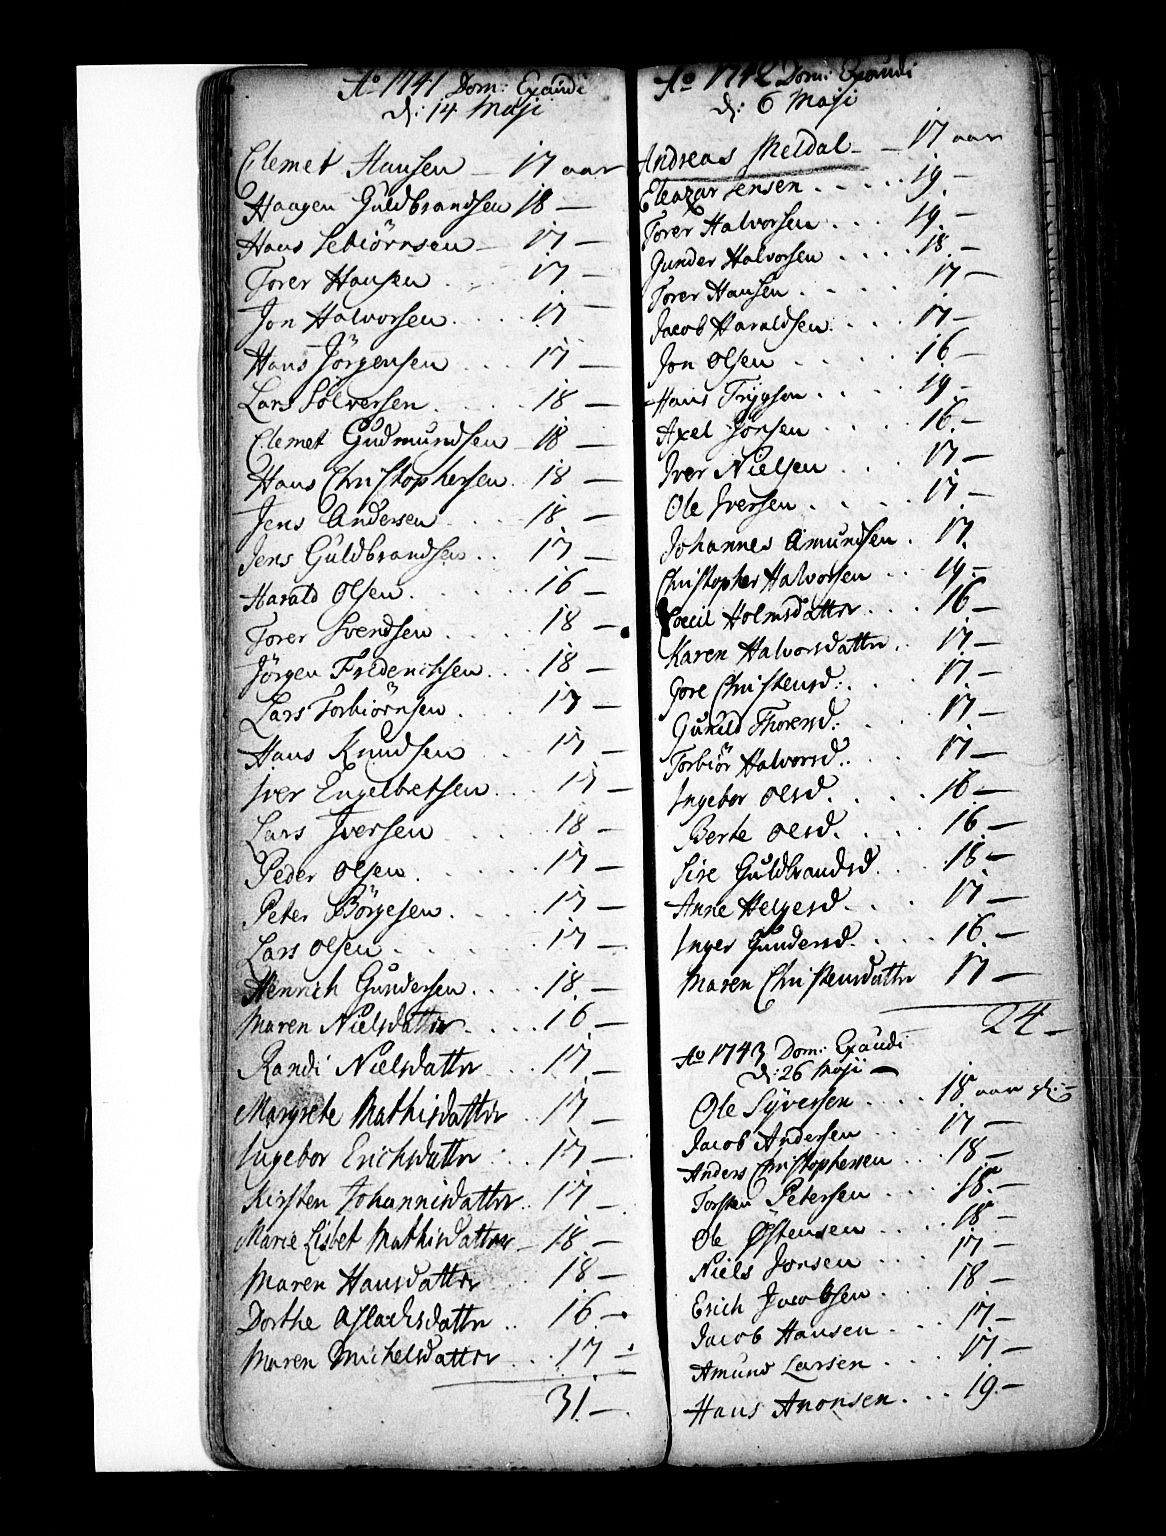 Ao 1741 Dom: Exaudi
d: 14 Maji
Clemet Hansen — 17 aar
Haagen Guldbrandsen 18 —
Hans Sebiörnsen — 17 —
Torer Hansen . . . 17 —
Jon Halvorsen . . . 17 —
Hans Jörgensen . . . 17 —
Lars Sölversen . . . 18 —
Clemet Gudmundsen — 18 —
Hans Christophersen . 18 —
Jens Andersen . . . 18 —
Jens Guldbrandsen . . 17 —
Harald Olsen . . . 16 —
Torer Svendsen . . . 18 —
Jörgen Frederichsen . . 18 —
Lars Torbiörnsen . . . 17 —
Hans Knudsen . . . 17 —
Iver Engelbretsen . . . 17 —
Lars Iversen . . . 18 —
Peder Olsen . . . 17 —
Peter Börgesen . . . 17 —
Lars Olsen . . . 17 —
Henrich Gundersen . . . 18 —
Maren Nielsdatter . . . 16 —
Randi Nielsdatter . . . 17 —
Margrete Mathisdatter . 17 —
Ingebor Erichsdatter . . 17 —
Kirsten Johannisdatter . . 17 —
Marie Lisbet Mathisdatter — 18 —
Maren Hansdatter . . 18 —
Dorthe Aslachsdatter . . 16 —
Maren Michelsdatter . . . 17 —
31 —
Ao 1742 Dom: Exaudi
d: 6 Maji
Andreas Meldal — 17 aar
Eleazar Jensen . . . . . 19 —
Torer Halvorsen . . . 19 —
Gunder Halvorsen . . . . 18 —
Torer Hansen . . . . 17 —
Jacob Haraldsen . . . 17 —
Jon Olsen . . . . . 16 —
Hans Trygson . . . . 19 —
Axel Jönsen . . . . 16 —
Iver Nielsen . . . 17 —
Ole Iversen . . . . 17 —
Johannes Amundsen . 17
Christopher Halvorsen . . . 19 —
Cecil Holmsdatter . . . 16 —
Karen Halvorsdatter . . 17 —
Gore Christensd: . . . 17 —
Gunild Thorersd: . . . 17 —
Torbiör Halvorsd. . . . 17 —
Ingebor Olsd. . . . . 16 —
Berte Olsd. . . . . 16 —
Sire Guldbrandsd. . . 18 —
Anne Helgesd . . . . 17 —
Inger Gundersd. . . . . 16 —
Maren Christensdatter 17 —
24 —
Ao 1743 Dom: Exaudi
d: 26 Maji —
Ole Syversen . . . . 18 aar gl: —
Jacob Andersen . . . 17 —
Anders Christophersen . . . 18 —
Torsten Petersen . . . . 18 —
Ole Östensen . . . . 18 —
Niels Jonsen . . . 17 —
Erich Jacobsen . . . . 18 —
Jacob Hansen . . . . 17 —
Amund Larsen . . . 17 —
Hans Aronsen . . . 19 —